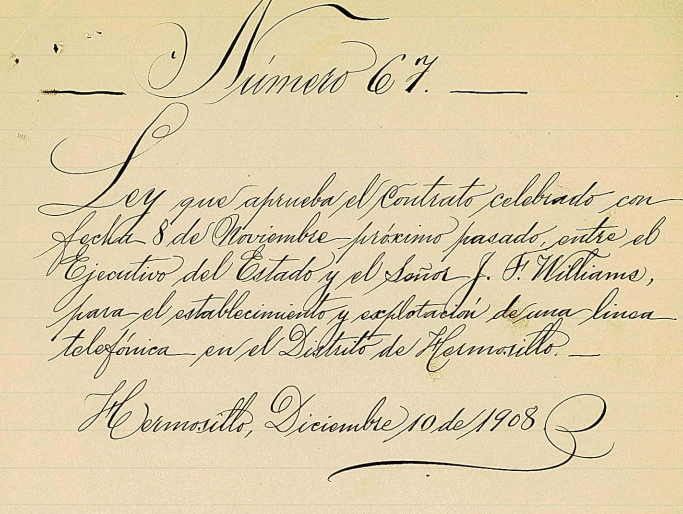 Número 67.
Ley que aprueba el Contrato celebrado con
fecha 8 de Noviembre próximo pasado, entre el
Ejecutivo del Estado y el Señor J. F. Williams,
para el establecimiento y explotación de una linea
telefónica en el Distrito de Hermosillo.
Hermosillo, Diciembre 10 de 1908